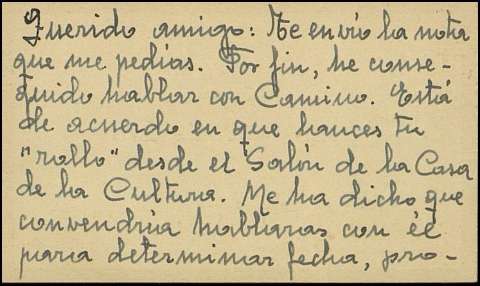 Querido amigo: Te envío la nota
que me pedías. Por fin, he conse-
guido hablar con Camino. Está
de acuerdo en que lances tu
"rollo" desde el Salón de la Casa
de la Cultura. Me ha dicho que
convendría hablaras con él
para determinar fecha, pro-